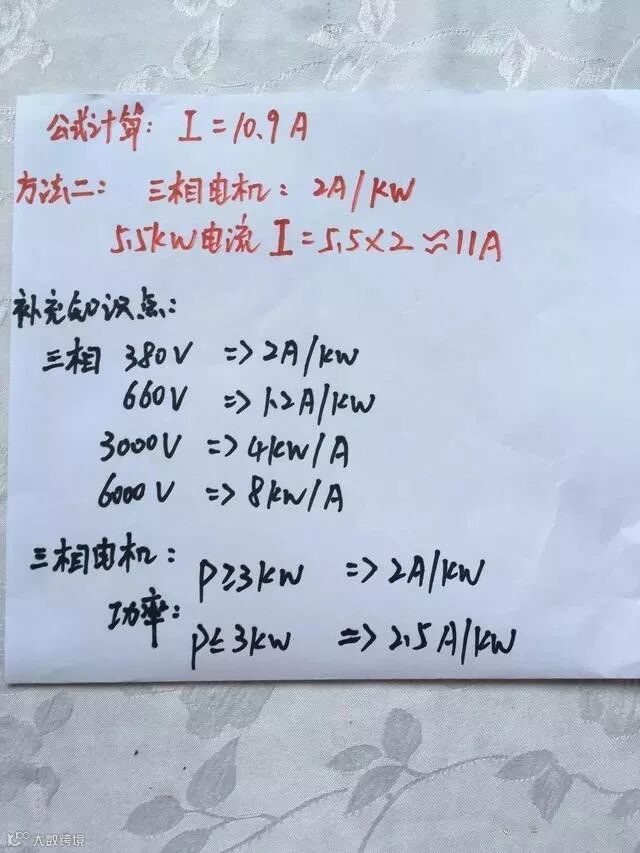 公式计算: I=10.9A
方法二: 三相电机: 2A/KW
5.5KW电流 I=5.5×2≈11A
补充知识点:
三相 380V => 2A/KW
660V => 1.2A/KW
3000V => 4KW/A
6000V => 8KW/A
三相电机: P≥3KW => 2A/KW
功率: P≤3KW => 2.5A/KW
大数跨境